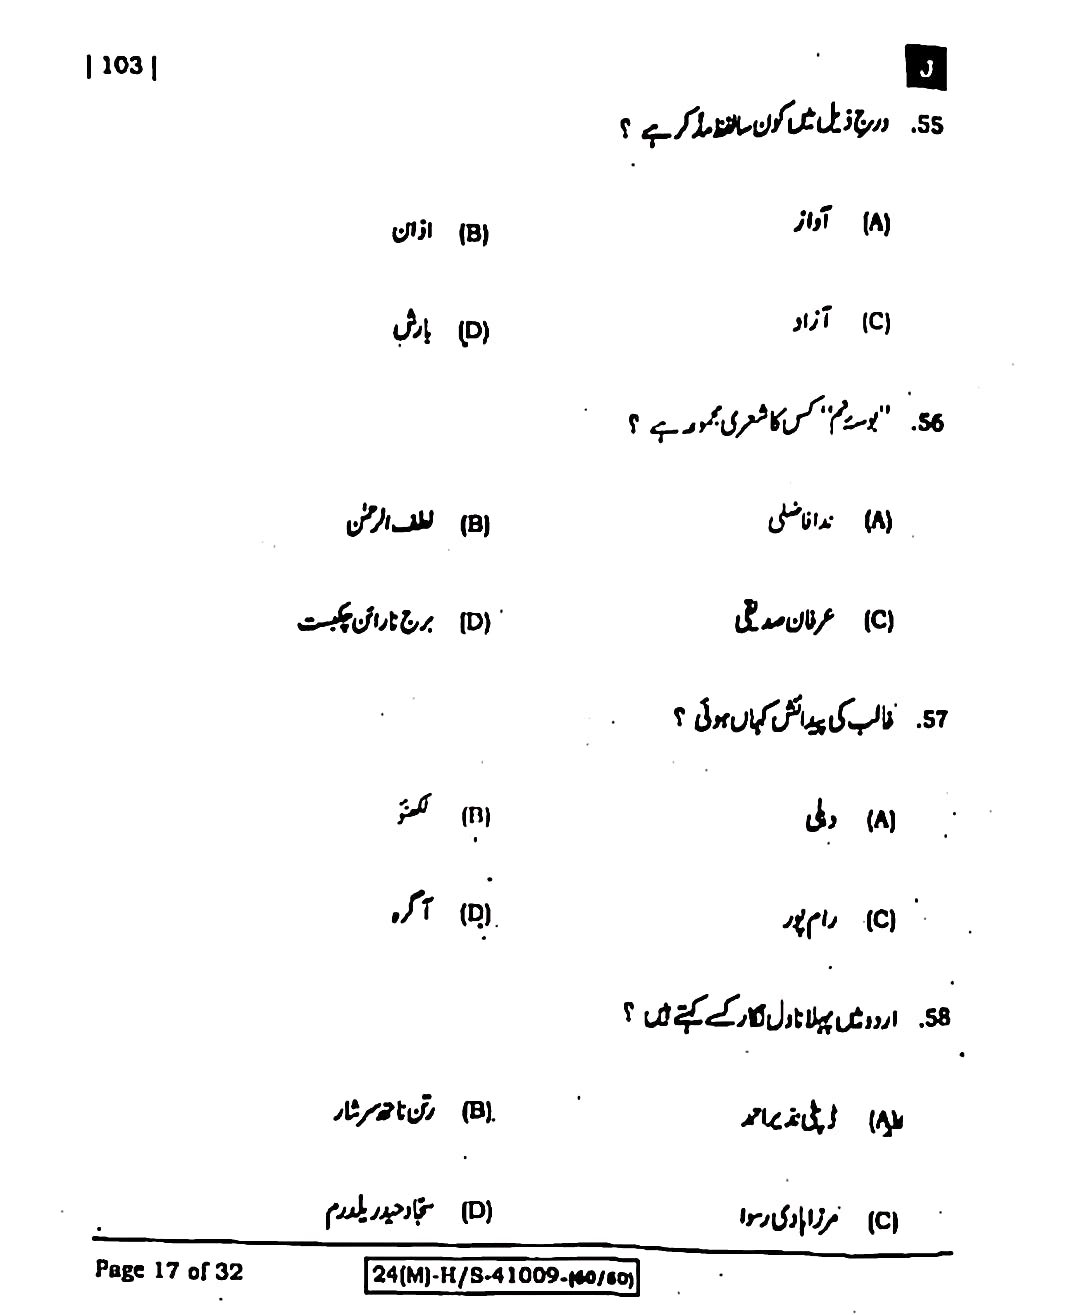 | 103 |
J
55. درج ذیل میں کون سا لفظ مذکر ہے ؟
(A) آواز
(B) اذان
(C) آزاد
(D) بارش
56. "بوسۂ نم" کس کا شعری مجموعہ ہے ؟
(A) ندا فاضلی
(B) لطف الرحمٰن
(C) عرفان صدیقی
(D) برج نارائن چکبست
57. غالب کی پیدائش کہاں ہوئی ؟
(A) دہلی
(B) لکھنؤ
(C) رام پور
(D) آگرہ
58. اردو میں پہلا ناول نگار کسے کہتے ہیں ؟
(A) ڈپٹی نذیر احمد
(B) رتن ناتھ سرشار
(C) مرزا ہادی رسوا
(D) سجّاد حیدر یلدرم
Page 17 of 32
24(M)-H/S-41009-(60/60)